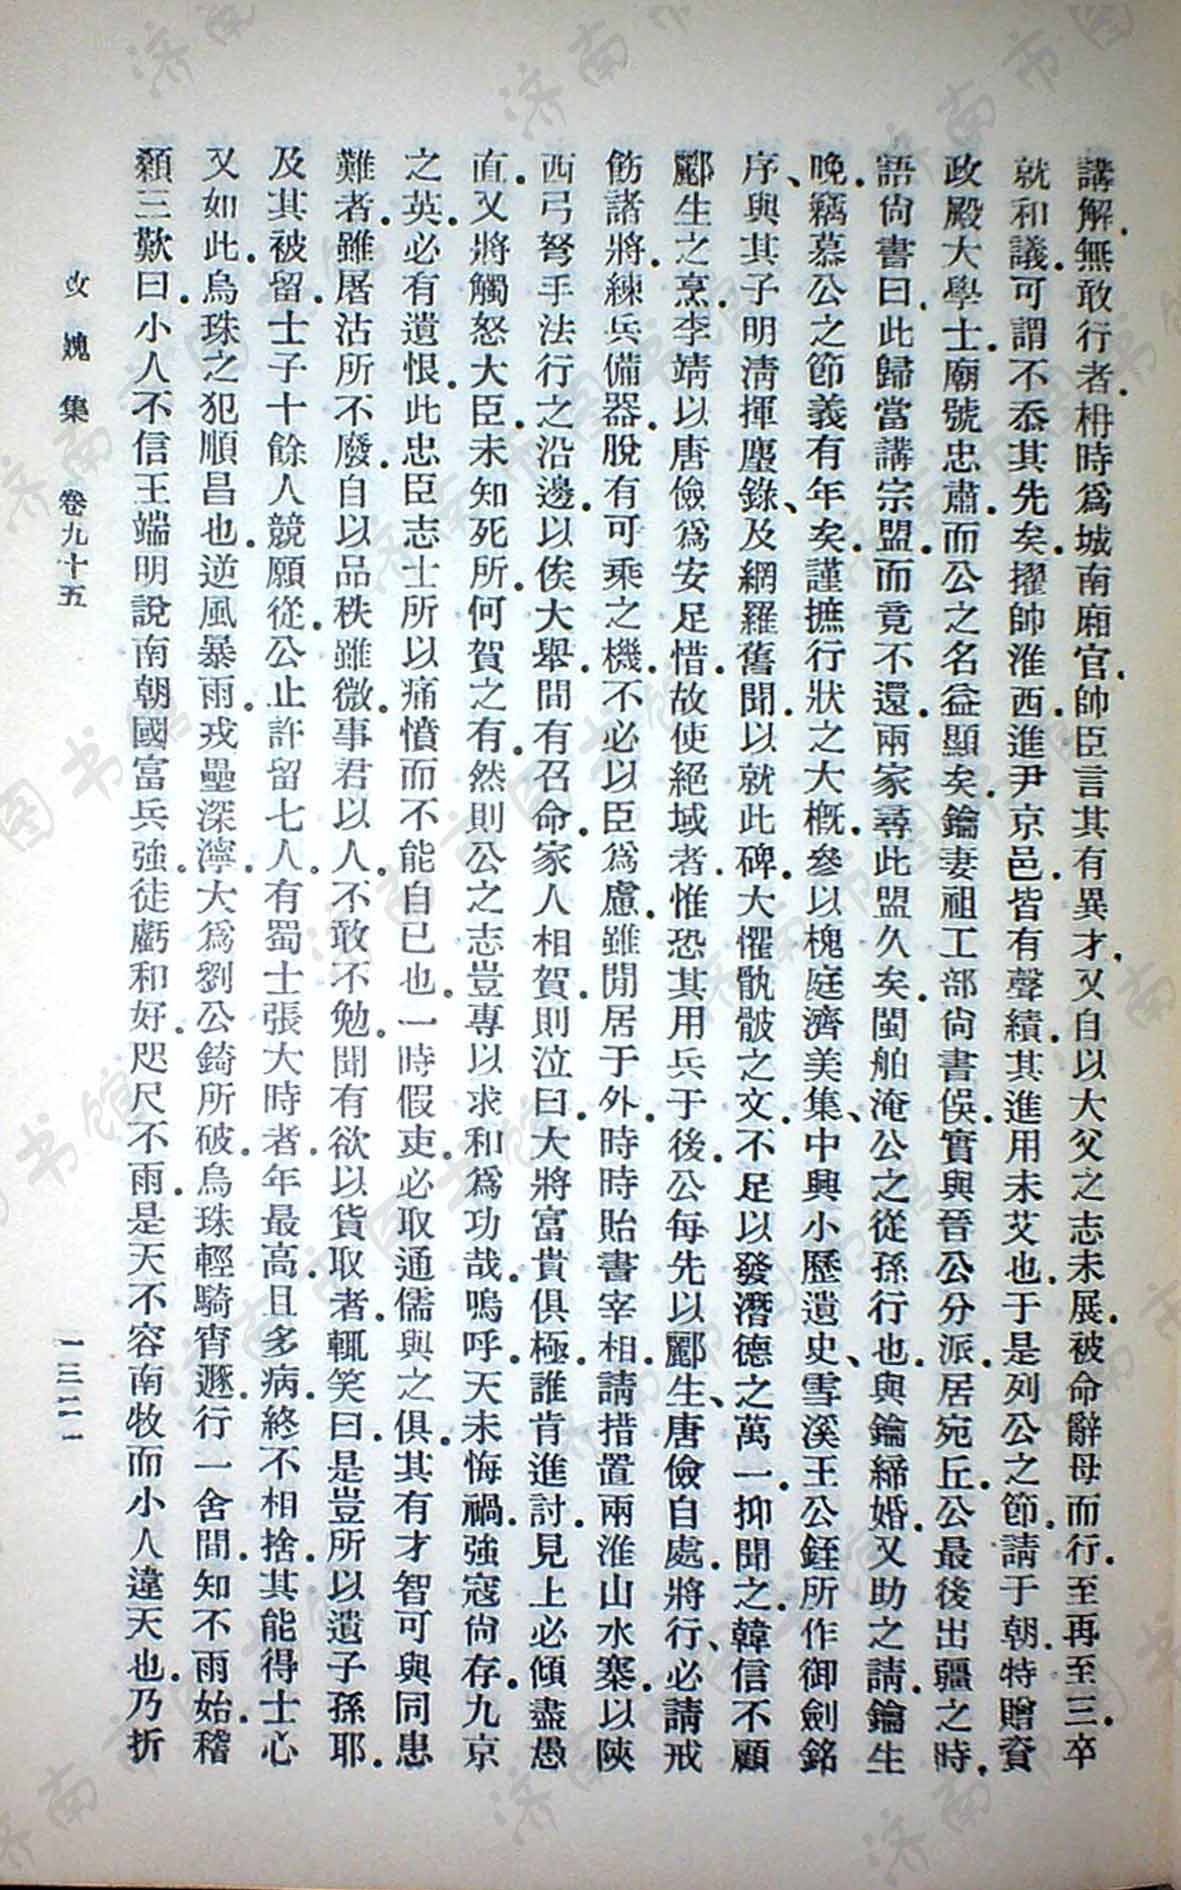 講解.無敢行者.枏時爲城南廂官.帥臣言其有異才.又自以大父之志未展.被命辭母而行.至再至三.卒
就和議.可謂不忝其先矣.擢帥淮西.進尹京邑.皆有聲績.其進用未艾也.于是列公之節.請于朝.特贈資
政殿大學士.廟號忠肅.而公之名益顯矣.鑰妻祖工部尙書俁.實與晉公分派.居宛丘.公最後出疆之時.
語尙書曰.此歸當講宗盟.而竟不還.兩家尋此盟久矣.閩舶淹公之從孫行也.與鑰締婚.又助之請.鑰生
晚.竊慕公之節義有年矣.謹摭行狀之大概.參以槐庭濟美集、中興小歷遺史、雪溪王公銍所作御劍銘
序、與其子明淸揮麈錄、及網羅舊聞.以就此碑.大懼骫骳之文.不足以發潛德之萬一.抑聞之.韓信不顧
酈生之烹.李靖以唐儉爲安足惜.故使絕域者.惟恐其用兵于後.公每先以酈生、唐儉自處.將行、必請戒
飭諸將.練兵備器.脫有可乘之機.不必以臣爲慮.雖閒居于外.時時貽書宰相.請措置兩淮山水寨.以陝
西弓弩手法行之沿邊.以俟大舉.間有召命.家人相賀.則泣曰.大將富貴俱極.誰肯進討.見上必傾盡愚
直.又將觸怒大臣.未知死所.何賀之有.然則公之志豈專以求和爲功哉.嗚呼.天未悔禍.強寇尙存.九京
之英.必有遺恨.此忠臣志士所以痛憤而不能自已也.一時假吏.必取通儒與之俱.其有才智可與同患
難者.雖屠沽所不廢.自以品秩雖微.事君以人.不敢不勉.聞有欲以貨取者.輒笑曰.是豈所以遺子孫耶.
及其被留.士子十餘人競願從.公止許留七人.有蜀士張大時者.年最高.且多病.終不相捨.其能得士心
又如此.烏珠之犯順昌也.逆風暴雨.戎壘深濘.大爲劉公錡所破.烏珠輕騎宵遯.行一舍間.知不雨.始稽
顙三歎曰.小人不信王端明說南朝國富兵強.徒虧和好.咫尺不雨.是天不容南牧.而小人違天也.乃折
攻媿集 卷九十五 一三二一